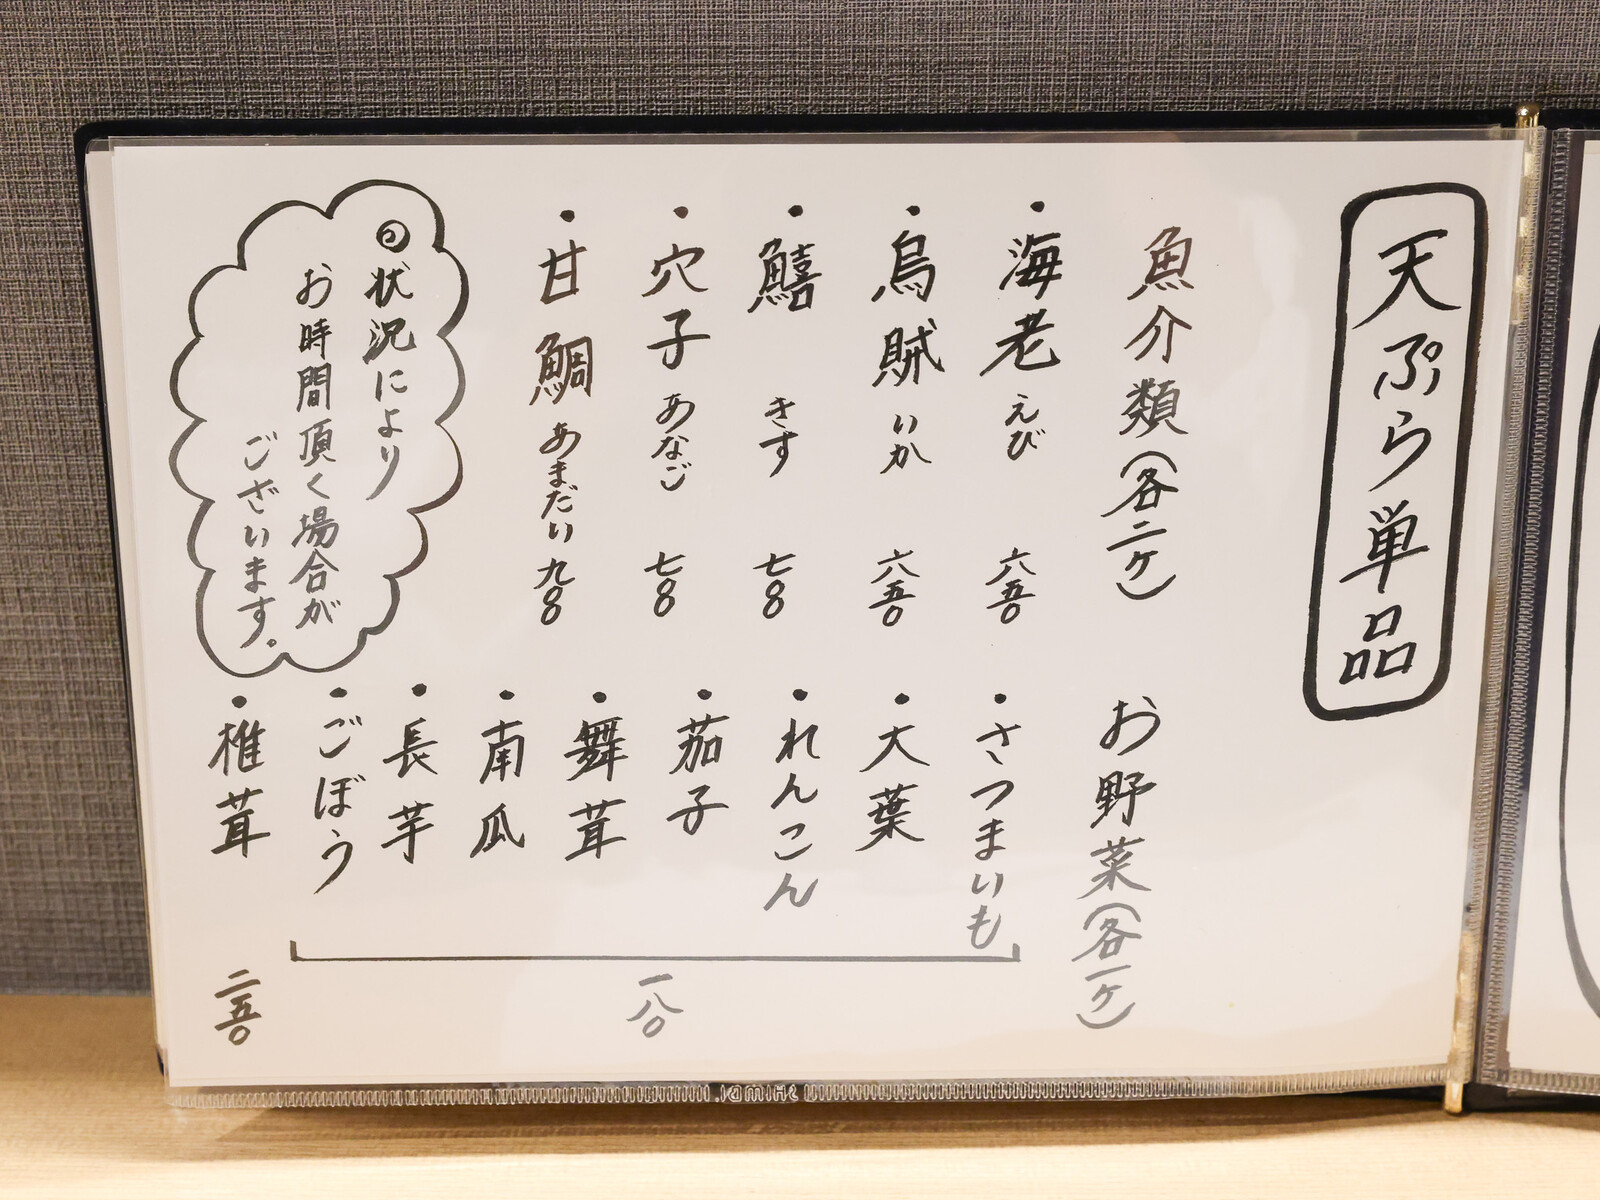 天ぷら単品
魚介類(各二ケ)
・海老 えび 六五〇
・烏賊 いか 六五〇
・鱚 きす 七〇〇
・穴子 あなご 七〇〇
・甘鯛 あまだい 九〇〇
◎状況により
お時間頂く場合が
ございます。
お野菜(各一ケ)
・さつまいも
・大葉
・れんこん
・茄子
・舞茸
・南瓜
・長芋
・ごぼう
一八〇
・椎茸 二五〇